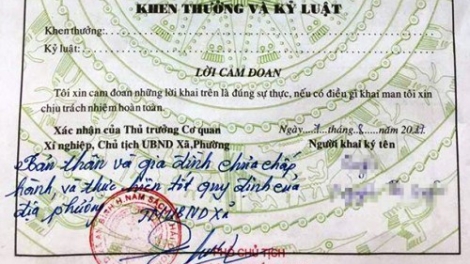 KHEN THƯỞNG VÀ KỶ LUẬT
Khen thưởng:
Kỷ luật:
LỜI CAM ĐOAN
Tôi xin cam đoan những lời khai trên là đúng sự thực, nếu có điều gì khai man tôi xin
chịu trách nhiệm hoàn toàn.
Xác nhận của Thủ trưởng Cơ quan
Xí nghiệp, Chủ tịch UBND Xã, Phường
Ngày tháng 8 năm 20
Người khai ký tên
Bản thân và gia đình chưa chấp
hành và thực hiện tốt quy định của
địa phương
TM UBND Xã
H. NAM SÁCH
PHÓ CHỦ TỊCH